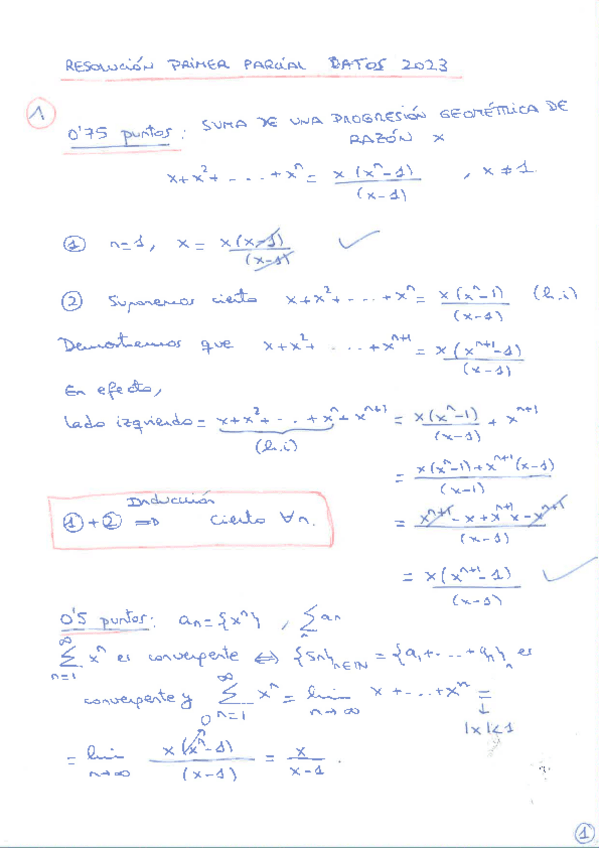 RESOLUCIÓN PRIMER PARCIAL DATOS 2023
1
0'75 puntos: SUMA DE UNA PROGRESIÓN GEOMÉTRICA DE
RAZÓN x
x+x²+ - . . . +xⁿ = x(xⁿ-1)/(x-1) , x ≠ 1
① n=1, x = x(x-1)/(x-1) ✓
② Suponemos cierto x+x²+ - . . +xⁿ = x(xⁿ-1)/(x-1) (h.i)
Demostremos que x+x²+ . . . +xⁿ⁺¹ = x(xⁿ⁺¹-1)/(x-1)
En efecto,
lado izquierdo = x+x²+ - . . +xⁿ+xⁿ⁺¹ = x(xⁿ-1)/(x-1) + xⁿ⁺¹
(h.i)
= x(xⁿ-1)+xⁿ⁺¹(x-1)/(x-1)
Inducción
①+② ⇒ cierto ∀n.
= xⁿ⁺¹-x+xⁿ⁺¹x-xⁿ⁺¹/(x-1)
= x(xⁿ⁺¹-1)/(x-1) ✓
0'5 puntos: an={xⁿ}, ∑n an
∑n=1^∞ xⁿ es convergente ⇔ {Sn}n∈ℕ = {a₁+ - . . +an}n es
convergente y ∑n=1^∞ xⁿ = lim n→∞ x + - . . +xⁿ =
↓
|x|<1
= lim n→∞ x(xⁿ-1)/(x-1) = x/x-1 .
0
1